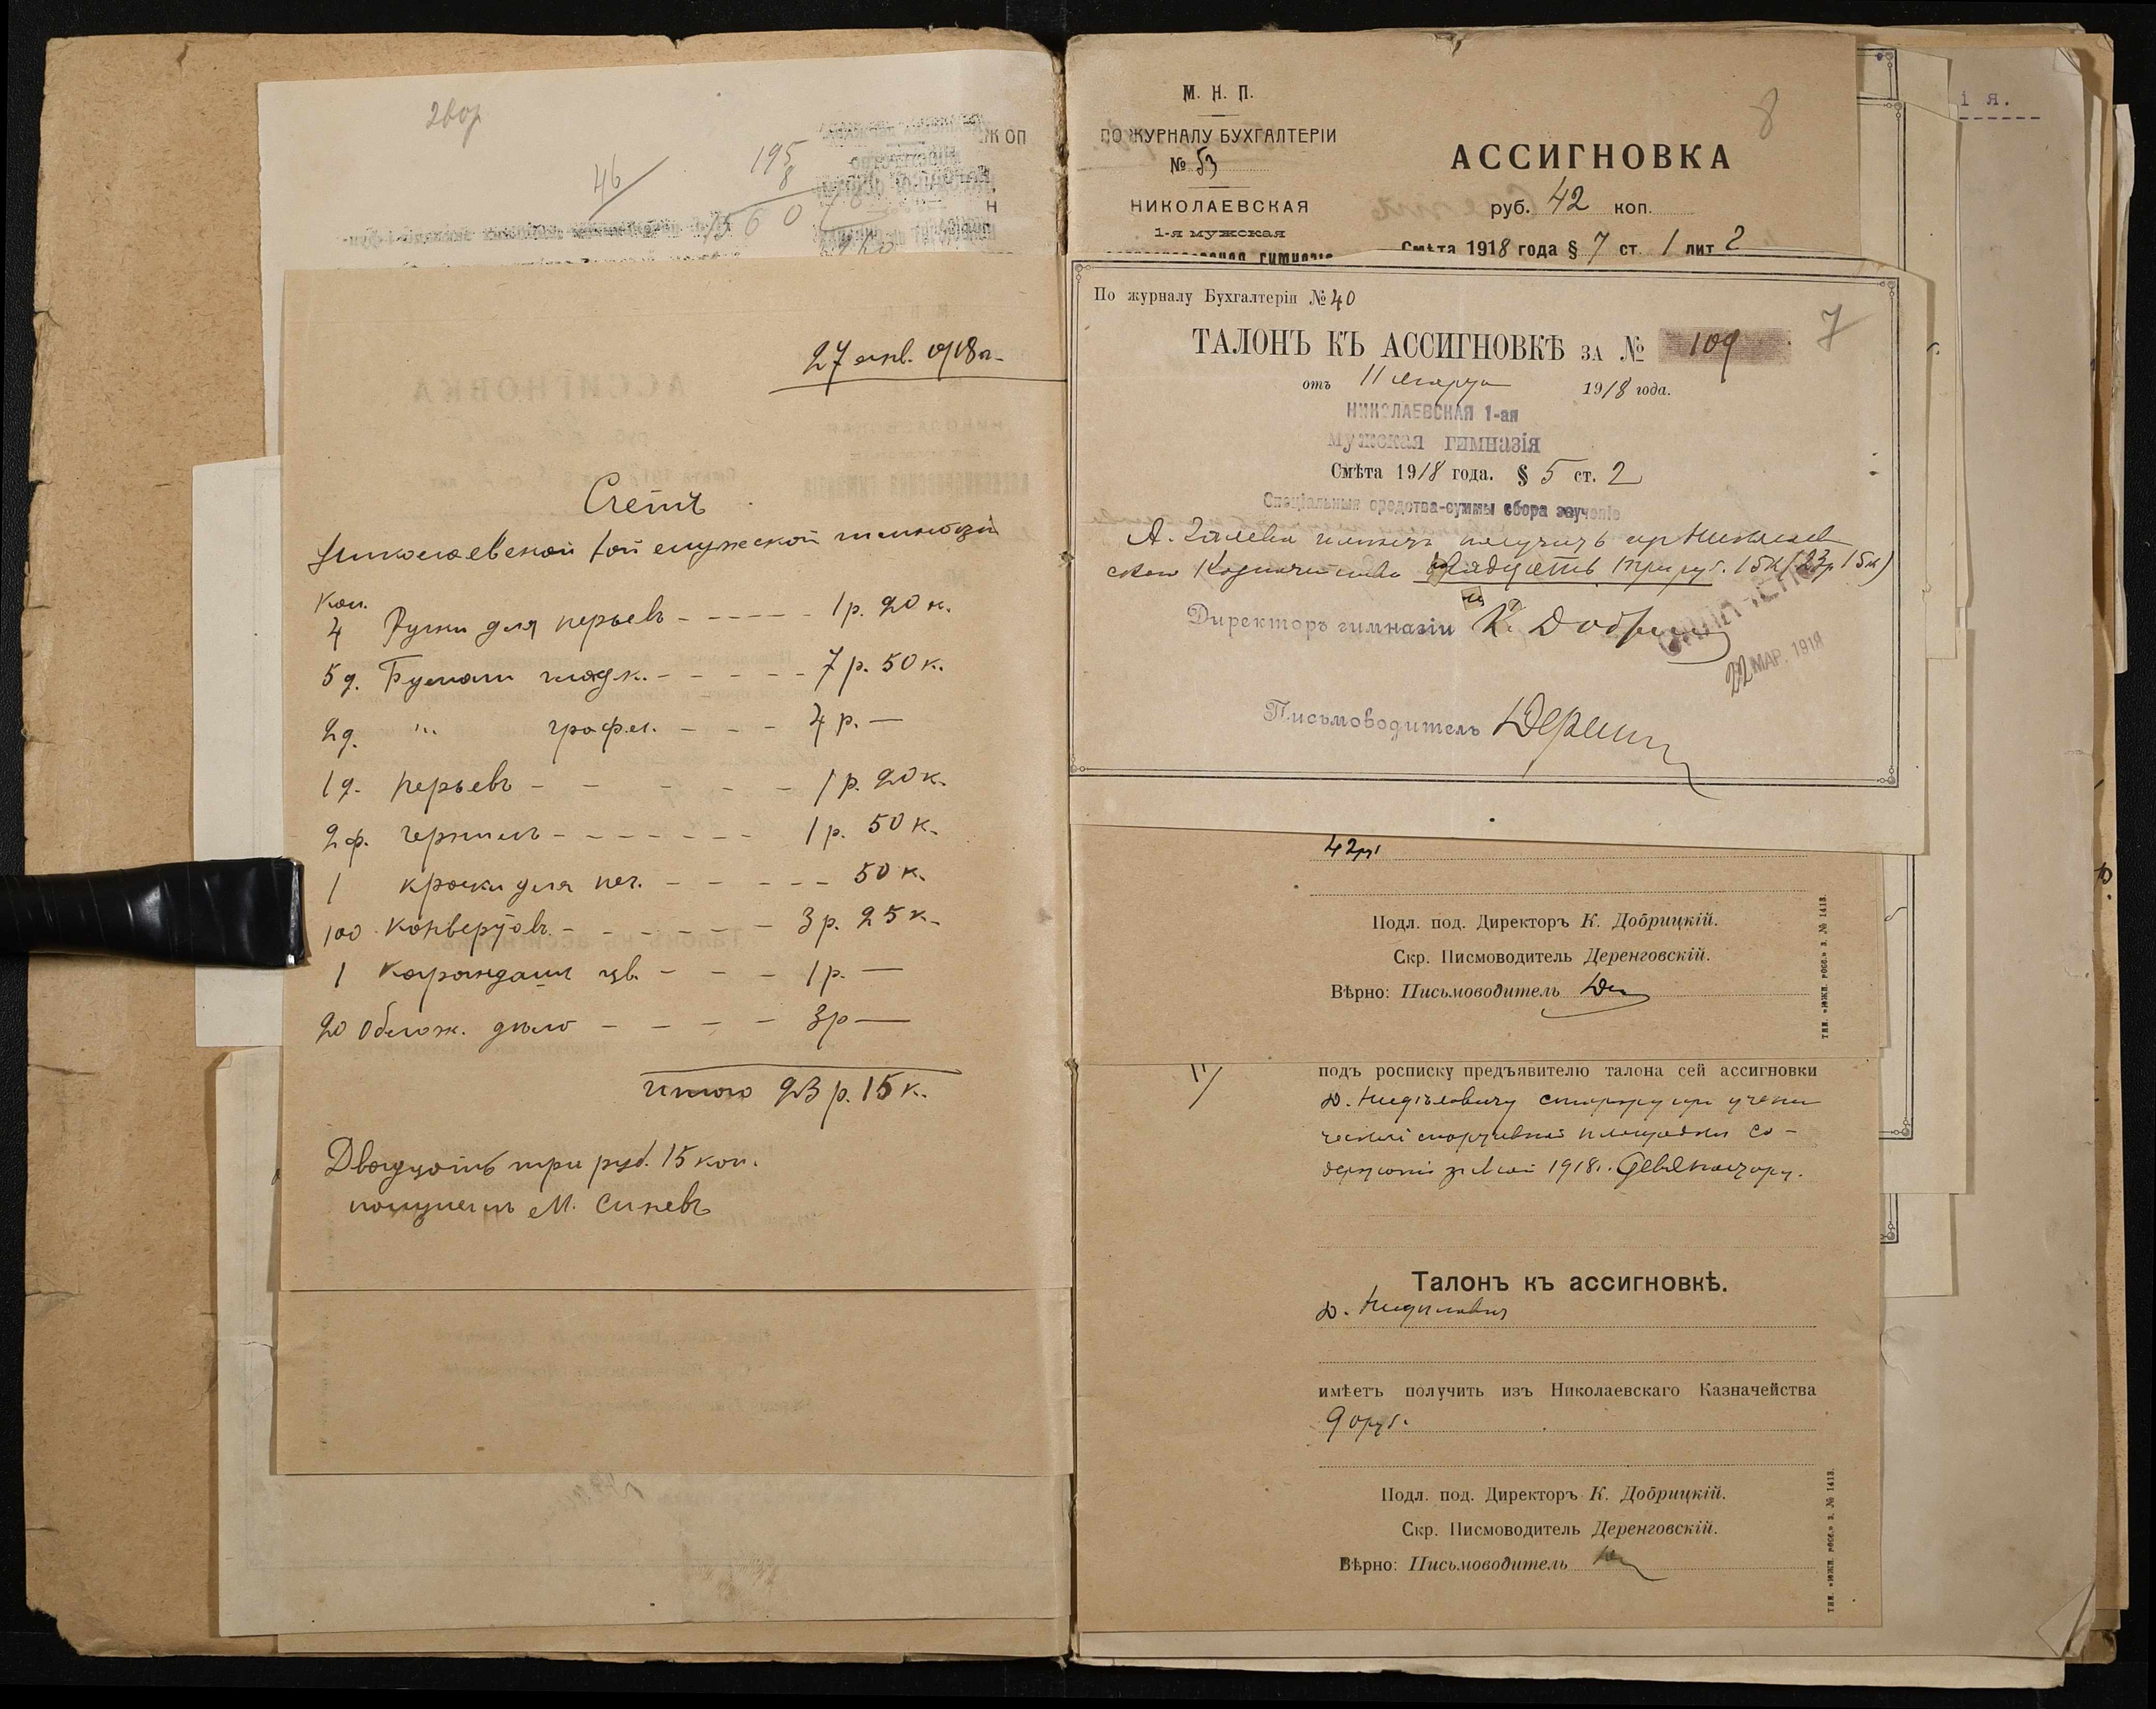 2 вор
46
195
8
27 янв. 1918 г.
Счетъ
Николаевской 1ой мужской гимназiи
Кол.
4 Ручки для перьевъ - - - - - 1 р. 20 к.
5 д. Бумаги гладк. - - - - - 7 р. 50 к.
2 д. " графл. - - - 4 р. —
1 д. перьевъ - - - - - 1 р. 20 к.
2 ф. чернилъ - - - - - - - 1 р. 50 к.
1 краски для печ. - - - - - 50 к.
100 конвертовъ - - - - - - 3 р. 25 к.
1 карандашъ цв. - - - 1 р. —
20 облож. дѣло - - - - 3 р —
итого 23 р. 15 к.
Двадцать три руб. 15 коп.
получилъ М. Синевъ
М. Н. П.
ПО ЖУРНАЛУ БУХГАЛТЕРІИ
№ 53
НИКОЛАЕВСКАЯ
1-я мужская
8
АССИГНОВКА
руб. 42 коп.
Смѣта 1918 года § 7 ст. 1 лит 2
По журналу Бухгалтеріи № 40
7
ТАЛОНЪ КЪ АССИГНОВКѢ ЗА № 109
отъ 11 марта 1918 года.
НИКОЛАЕВСКАЯ 1-ая
мужская гимназія
Смѣта 1918 года. § 5 ст. 2
Спеціальныя средства-суммы сбора за ученіе
А. получить изъ Николаев
скаго Казначейства двадцать три руб. 15 к (23 р 15 к)
Директоръ гимназіи К. Добрицкій
22 МАР. 1918
Письмоводитель
42 р.
Подл. под. Директоръ К. Добрицкій.
Скр. Писмоводитель Деренговскій.
Вѣрно: Письмоводитель
тип. «южн. росс.» з. № 1413.
подъ росписку предъявителю талона сей ассигновки
при учени
ческой спортивной площадки со-
1918 г. Девяносто р.
Талонъ къ ассигновкѣ.
имѣетъ получить изъ Николаевскаго Казначейства
90 руб.
Подл. под. Директоръ К. Добрицкій.
Скр. Писмоводитель Деренговскій.
Вѣрно: Письмоводитель
тип. «южн. росс.» з. № 1413.
ія.